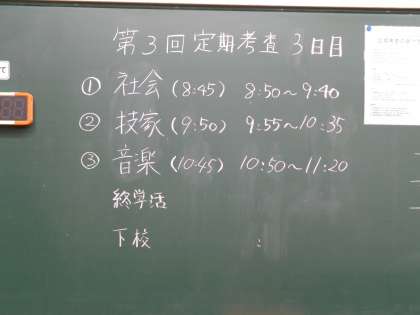 第3回定期考査 3日目
① 社会 (8:45) 8:50～9:40
② 技家 (9:50) 9:55～10:35
③ 音楽 (10:45) 10:50～11:20
終学活
下校 :
て